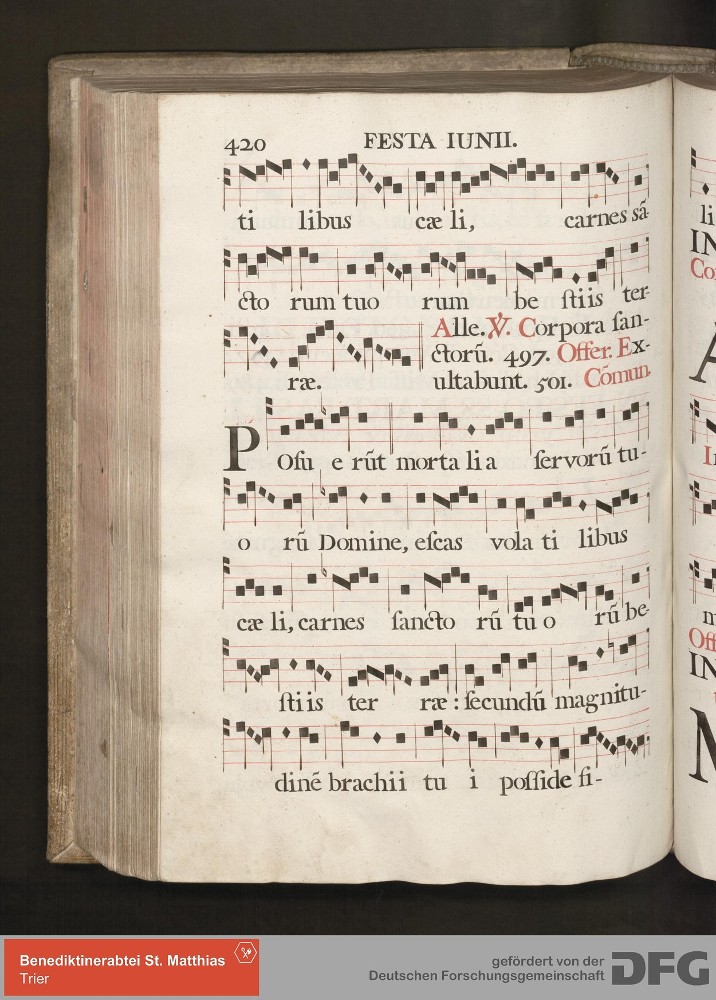 420 FESTA IUNII.
ti libus cæ li, carnes sā-
cto rum tuo rum be stiis ter-
Alle. ℣. Corpora san-
ctorū. 497. Offer. Ex-
ræ. ultabunt. 501. Cōmun.
POsu e rūt morta li a servorū tu-
o rū Domine, escas vola ti libus
cæ li, carnes sancto rū tu o rū be-
stiis ter ræ: secundū magnitu-
dinē brachii tu i posside fi-
li
IN
Co
A
I
m
Off
IN
M
Benediktinerabtei St. Matthias
Trier
gefördert von der
Deutschen Forschungsgemeinschaft DFG